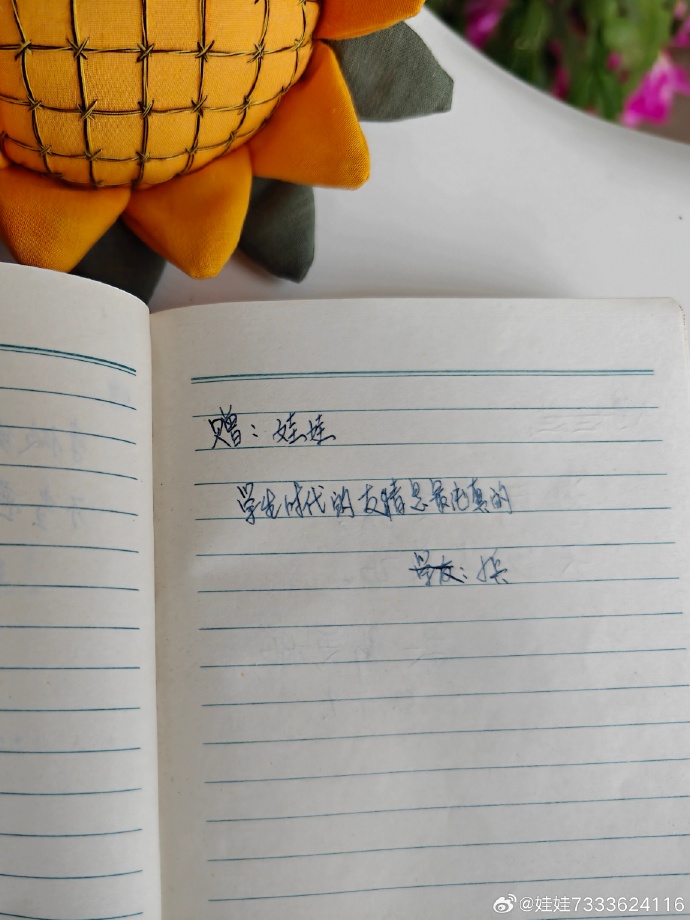 赠：娃娃
学生时代的友情是最纯真的
学友：嫔
@娃娃7333624116